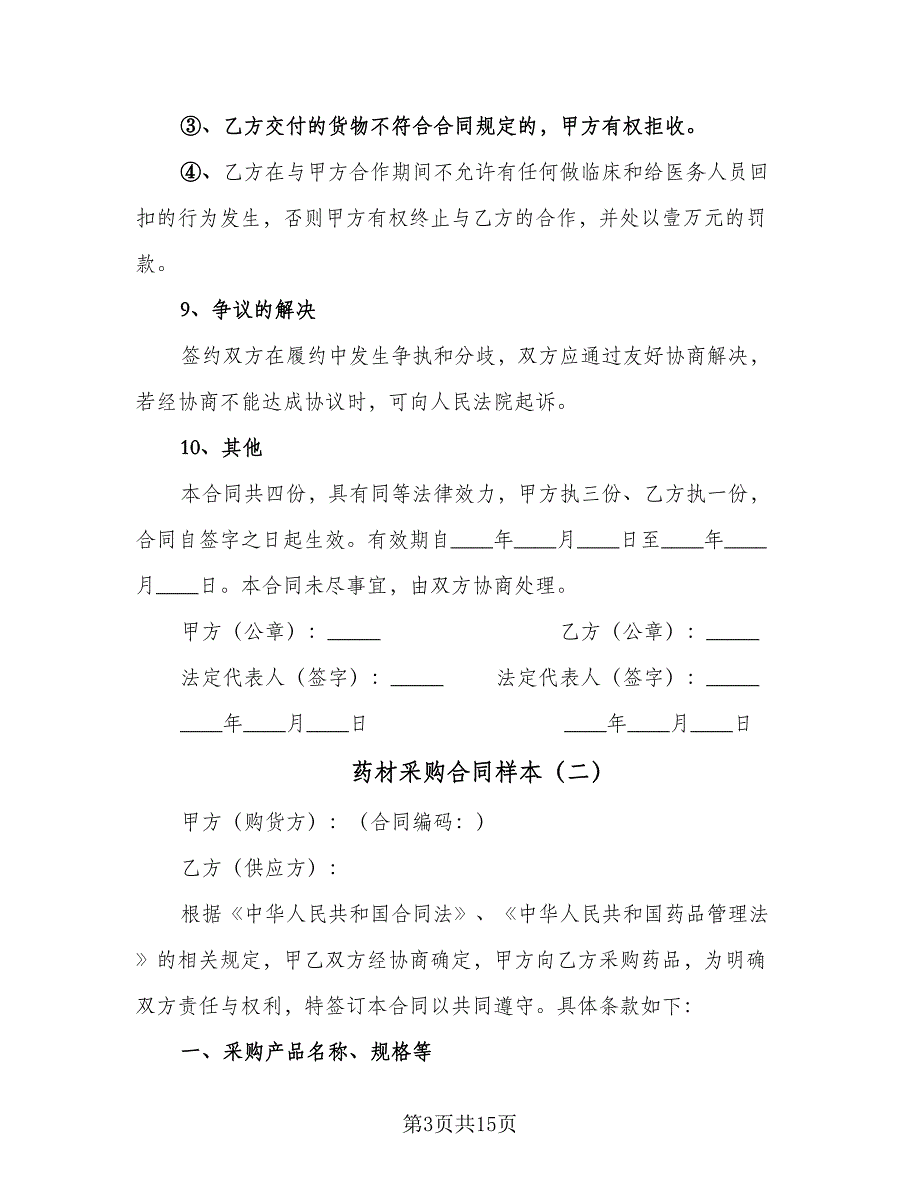 ③、乙方交付的货物不符合合同规定的，甲方有权拒收。
④、乙方在与甲方合作期间不允许有任何做临床和给医务人员回
扣的行为发生，否则甲方有权终止与乙方的合作，并处以壹万元的罚
款。
9、争议的解决
签约双方在履约中发生争执和分歧，双方应通过友好协商解决，
若经协商不能达成协议时，可向人民法院起诉。
10、其他
本合同共四份，具有同等法律效力，甲方执三份、乙方执一份，
合同自签字之日起生效。有效期自____年____月____日至____年____
月____日。本合同未尽事宜，由双方协商处理。
甲方（公章）：_____ 乙方（公章）：_____
法定代表人（签字）：_____ 法定代表人（签字）：_____
____年____月____日 ____年____月____日
药材采购合同样本（二）
甲方（购货方）：（合同编码：）
乙方（供应方）：
根据《中华人民共和国合同法》、《中华人民共和国药品管理法
》的相关规定，甲乙双方经协商确定，甲方向乙方采购药品，为明确
双方责任与权利，特签订本合同以共同遵守。具体条款如下：
一、采购产品名称、规格等
第3页共15页